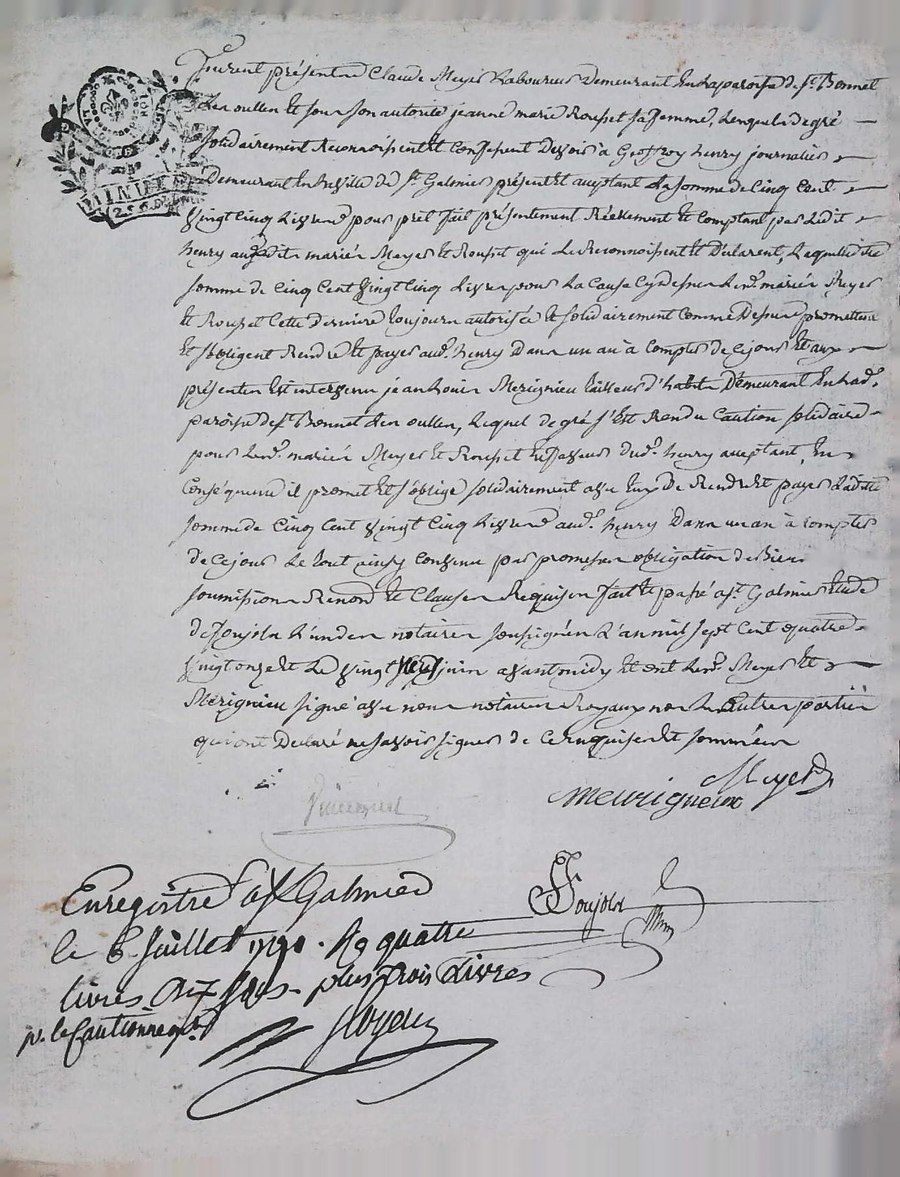 MINUTE
furent présents Claude Meyer Laboureur Demeurant En la paroisse de St Bonnet
Les oulles Et sous Son autorité jeanne marie Rouset sa femme, Lesquels de gré
solidairement Reconnoissent Et Confessent Devoir a Geoffroy henry journalier
Demeurant En la Ville de St Galmier présent Et aceptant La Somme de Cinq Cent
Vingt Cinq Livres pour prêt fait présentement Réellement Et Comptant par Ledit
henry auxdits mariés Meyer Et Rouset qui Le Reconnoissent Et Déclarent, Laquelle ditte
somme de Cinq Cent Vingt Cinq Livres pour La Cause Cy dessus Les d. mariés Meyer
Et Rouset Cette Derniere toujours autorisée Et solidairement Comme Dessus promettent
Et s'obligent Rendre Et payer aud. henry Dans un an à Compter de Ce jour Et aux
présentes Est intervenu jean Louis Merignieu tailleur d'habits Demeurant En lad.
paroisse de St Bonnet Les oulles, Lequel de gré s'Est Rendu Caution solidaire
pour Les d. mariés Meyer Et Rouset En faveur dud. henry aceptant, En
Conséquence il promet Et s'oblige solidairement avec Eux De Rendre Et payer Laditte
Somme de Cinq Cent Vingt Cinq Livres aud. henry Dans un an à Compter
de Ce jour Le tout ainsy Convenu par promesses obligation de Biens
soumissions Renon. Et Clauses Requises fait Et passé a St Galmier Etude
de Soujols L'un des notaires soussignés L'an mil sept Cent quatre
Vingt onze Et Le Vingt neuf juin avant midy Et ont Les d. Meyer Et
Merignieu signé avec nous notaires Royaux non Les autres parties
qui ont Déclaré ne savoir signer de Ce Enquises Et sommées
Meyer
meurigneux
Soujols
Enregistré à St Galmier
le 6 Juillet 1791. Rç quatre
livres dix sous plus trois Livres
pr. le Cautionnemt.